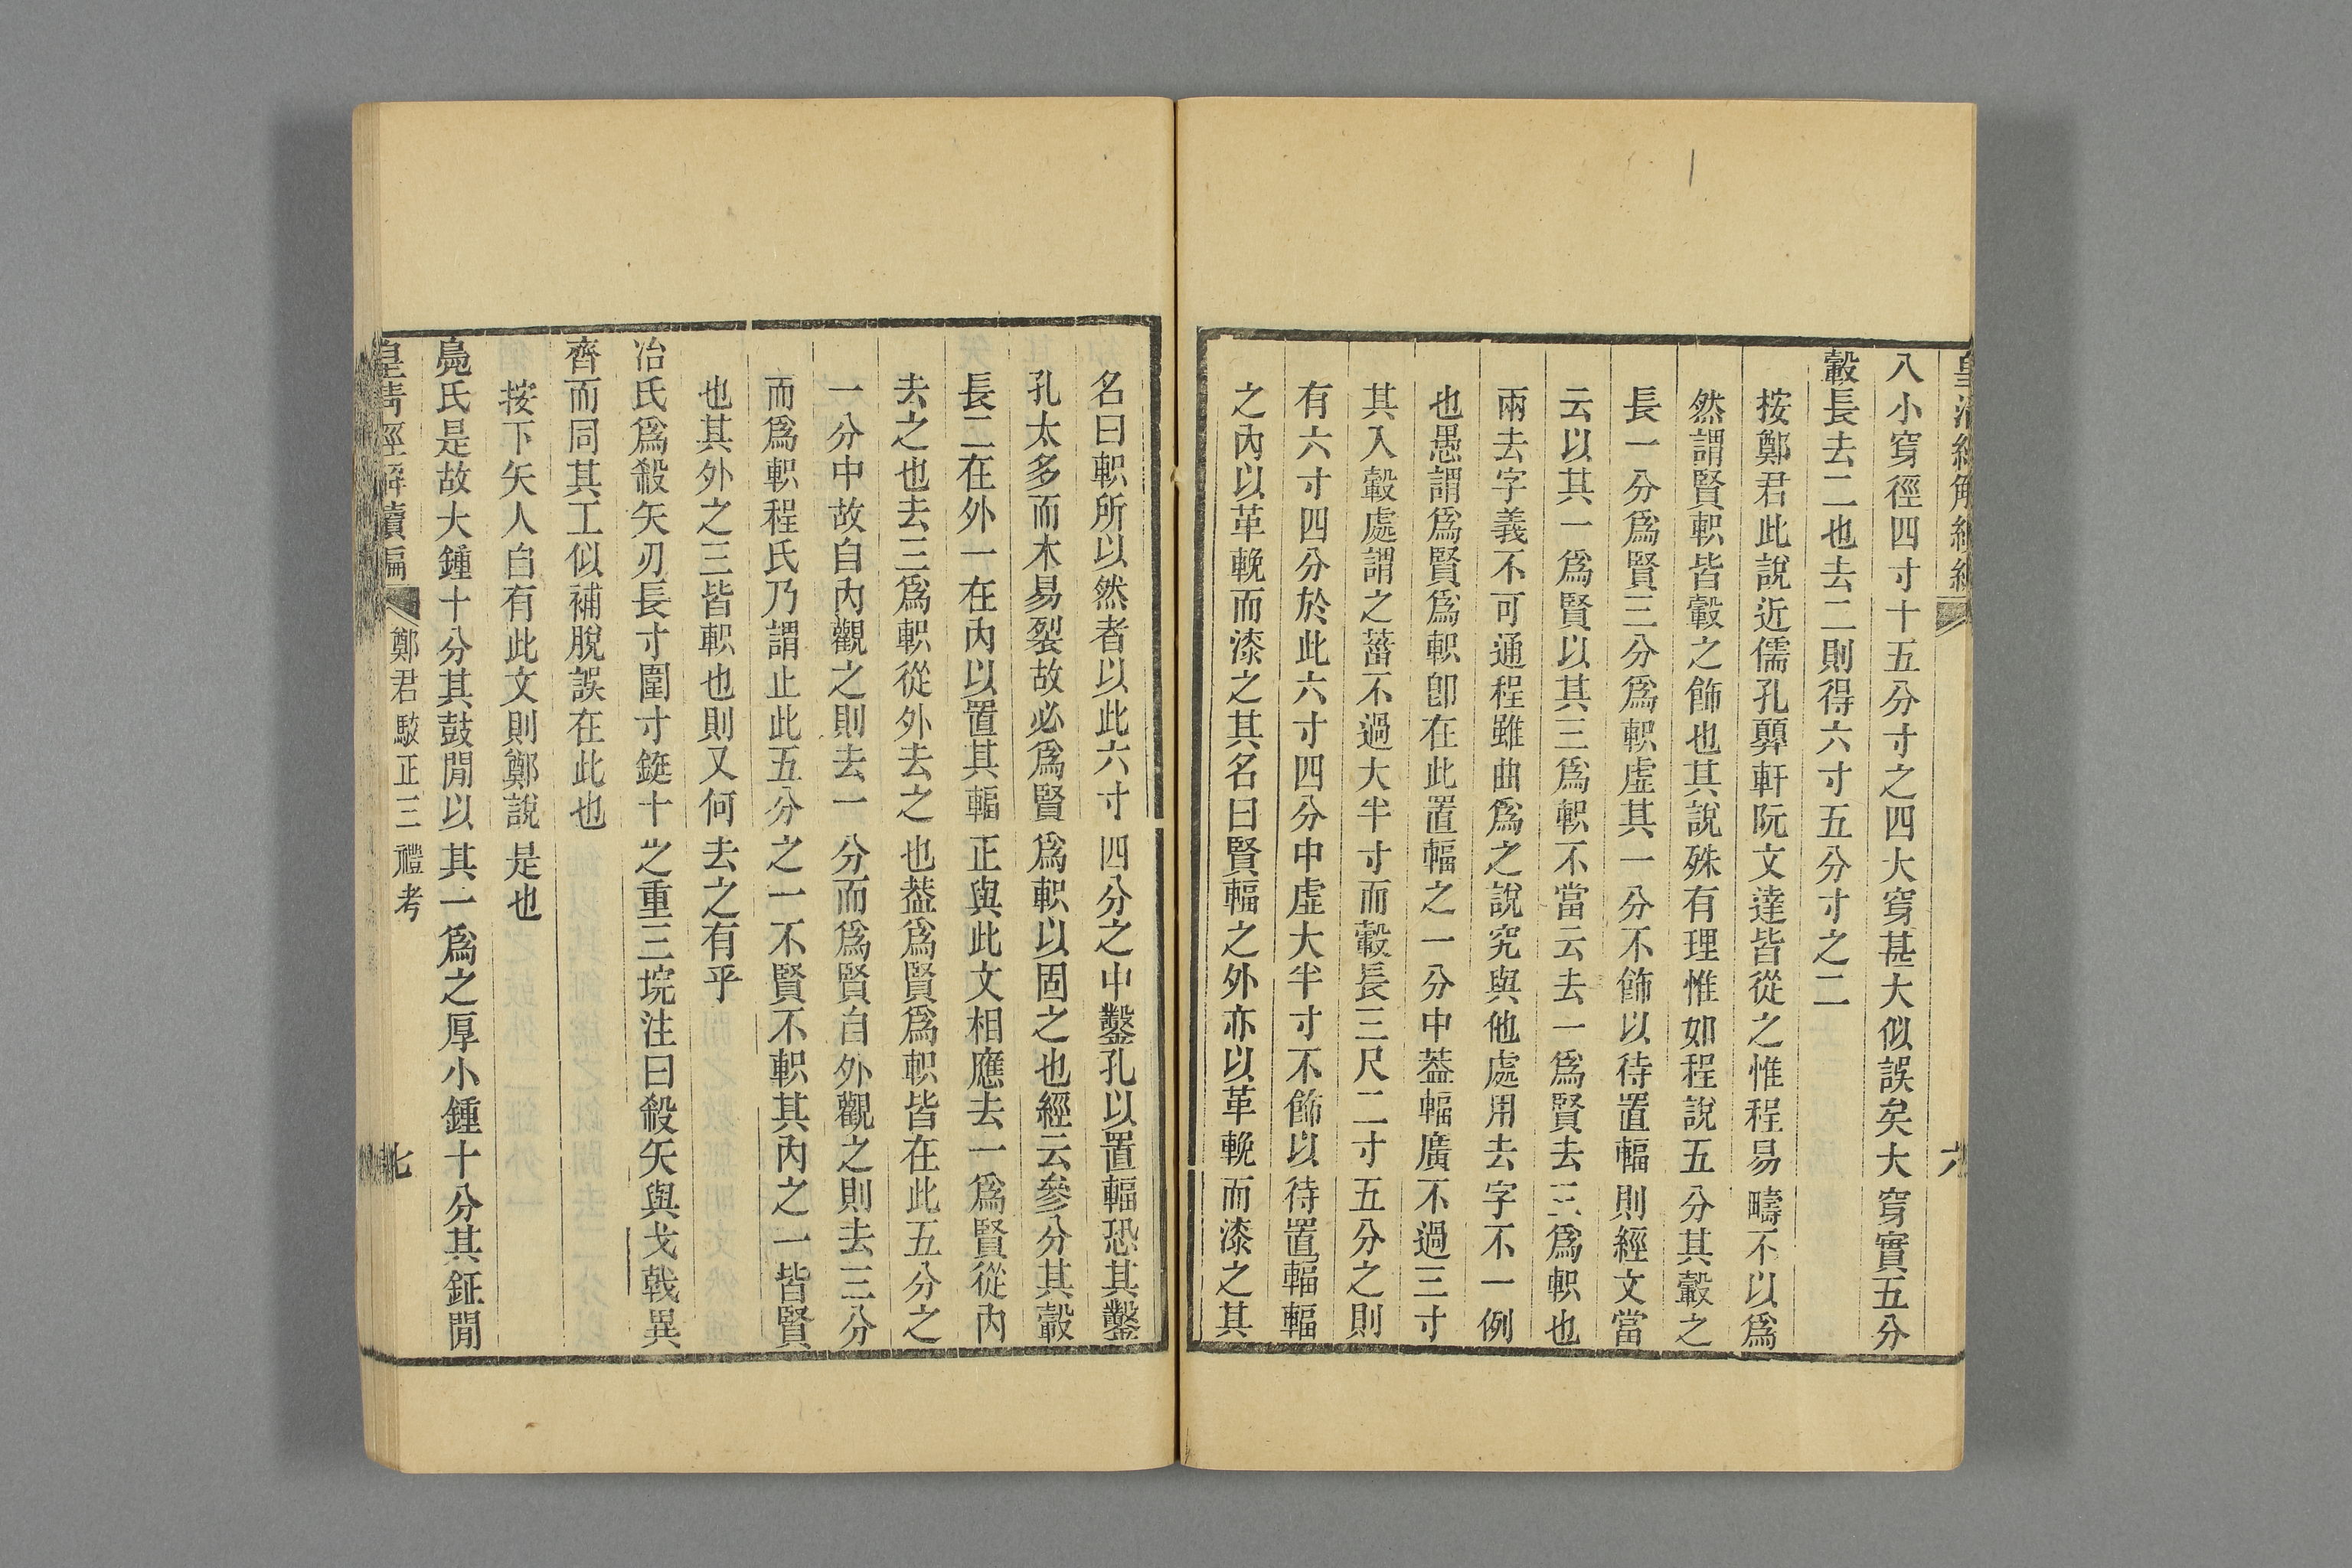 皇清經解續編
六
八小穿徑四寸十五分寸之四大穿甚大似誤矣大穿實五分
轂長去二也去二則得六寸五分寸之二
按鄭君此說近儒孔顨軒阮文達皆從之惟程易疇不以爲
然謂賢軹皆轂之飾也其說殊有理惟如程說五分其轂之
長一分爲賢三分爲軹虛其一分不飾以待置輻則經文當
云以其一爲賢以其三爲軹不當云去一爲賢去三爲軹也
兩去字義不可通程雖曲爲之說究與他處用去字不一例
也愚謂爲賢爲軹卽在此置輻之一分中葢輻廣不過三寸
其入轂處謂之菑不過大半寸而轂長三尺二寸五分之則
有六寸四分於此六寸四分中虛大半寸不飾以待置輻輻
之內以革輓而漆之其名曰賢輻之外亦以革輓而漆之其
名曰軹所以然者以此六寸四分之中鑿孔以置輻恐其鑿
孔太多而木易裂故必爲賢爲軹以固之也經云參分其轂
長二在外一在內以置其輻正與此文相應去一爲賢從內
去之也去三爲軹從外去之也葢爲賢爲軹皆在此五分之
一分中故自內觀之則去一分而爲賢自外觀之則去三分
而爲軹程氏乃謂止此五分之一不賢不軹其內之一皆賢
也其外之三皆軹也則又何去之有乎
冶氏爲殺矢刃長寸圍寸鋌十之重三垸注曰殺矢與戈戟異
齊而同其工似補脫誤在此也
按下矢人自有此文則鄭說是也
鳧氏是故大鍾十分其鼓閒以其一爲之厚小鍾十分其鉦閒
皇清經解續編
鄭君駁正三禮考
七